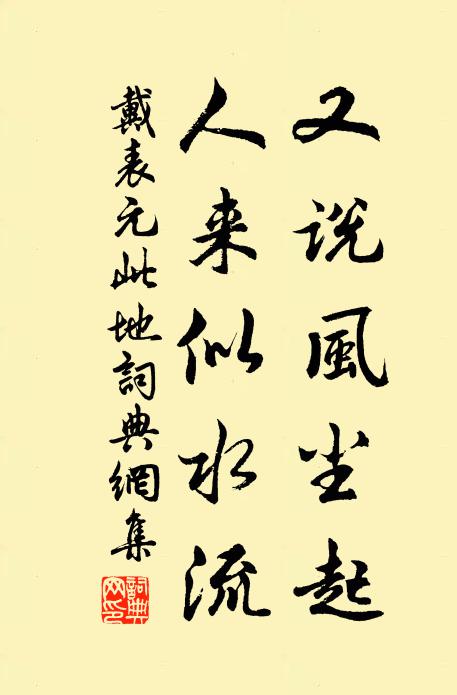 又說風尘起
人来似水流
戴表元此地詞典網集
詞典网印